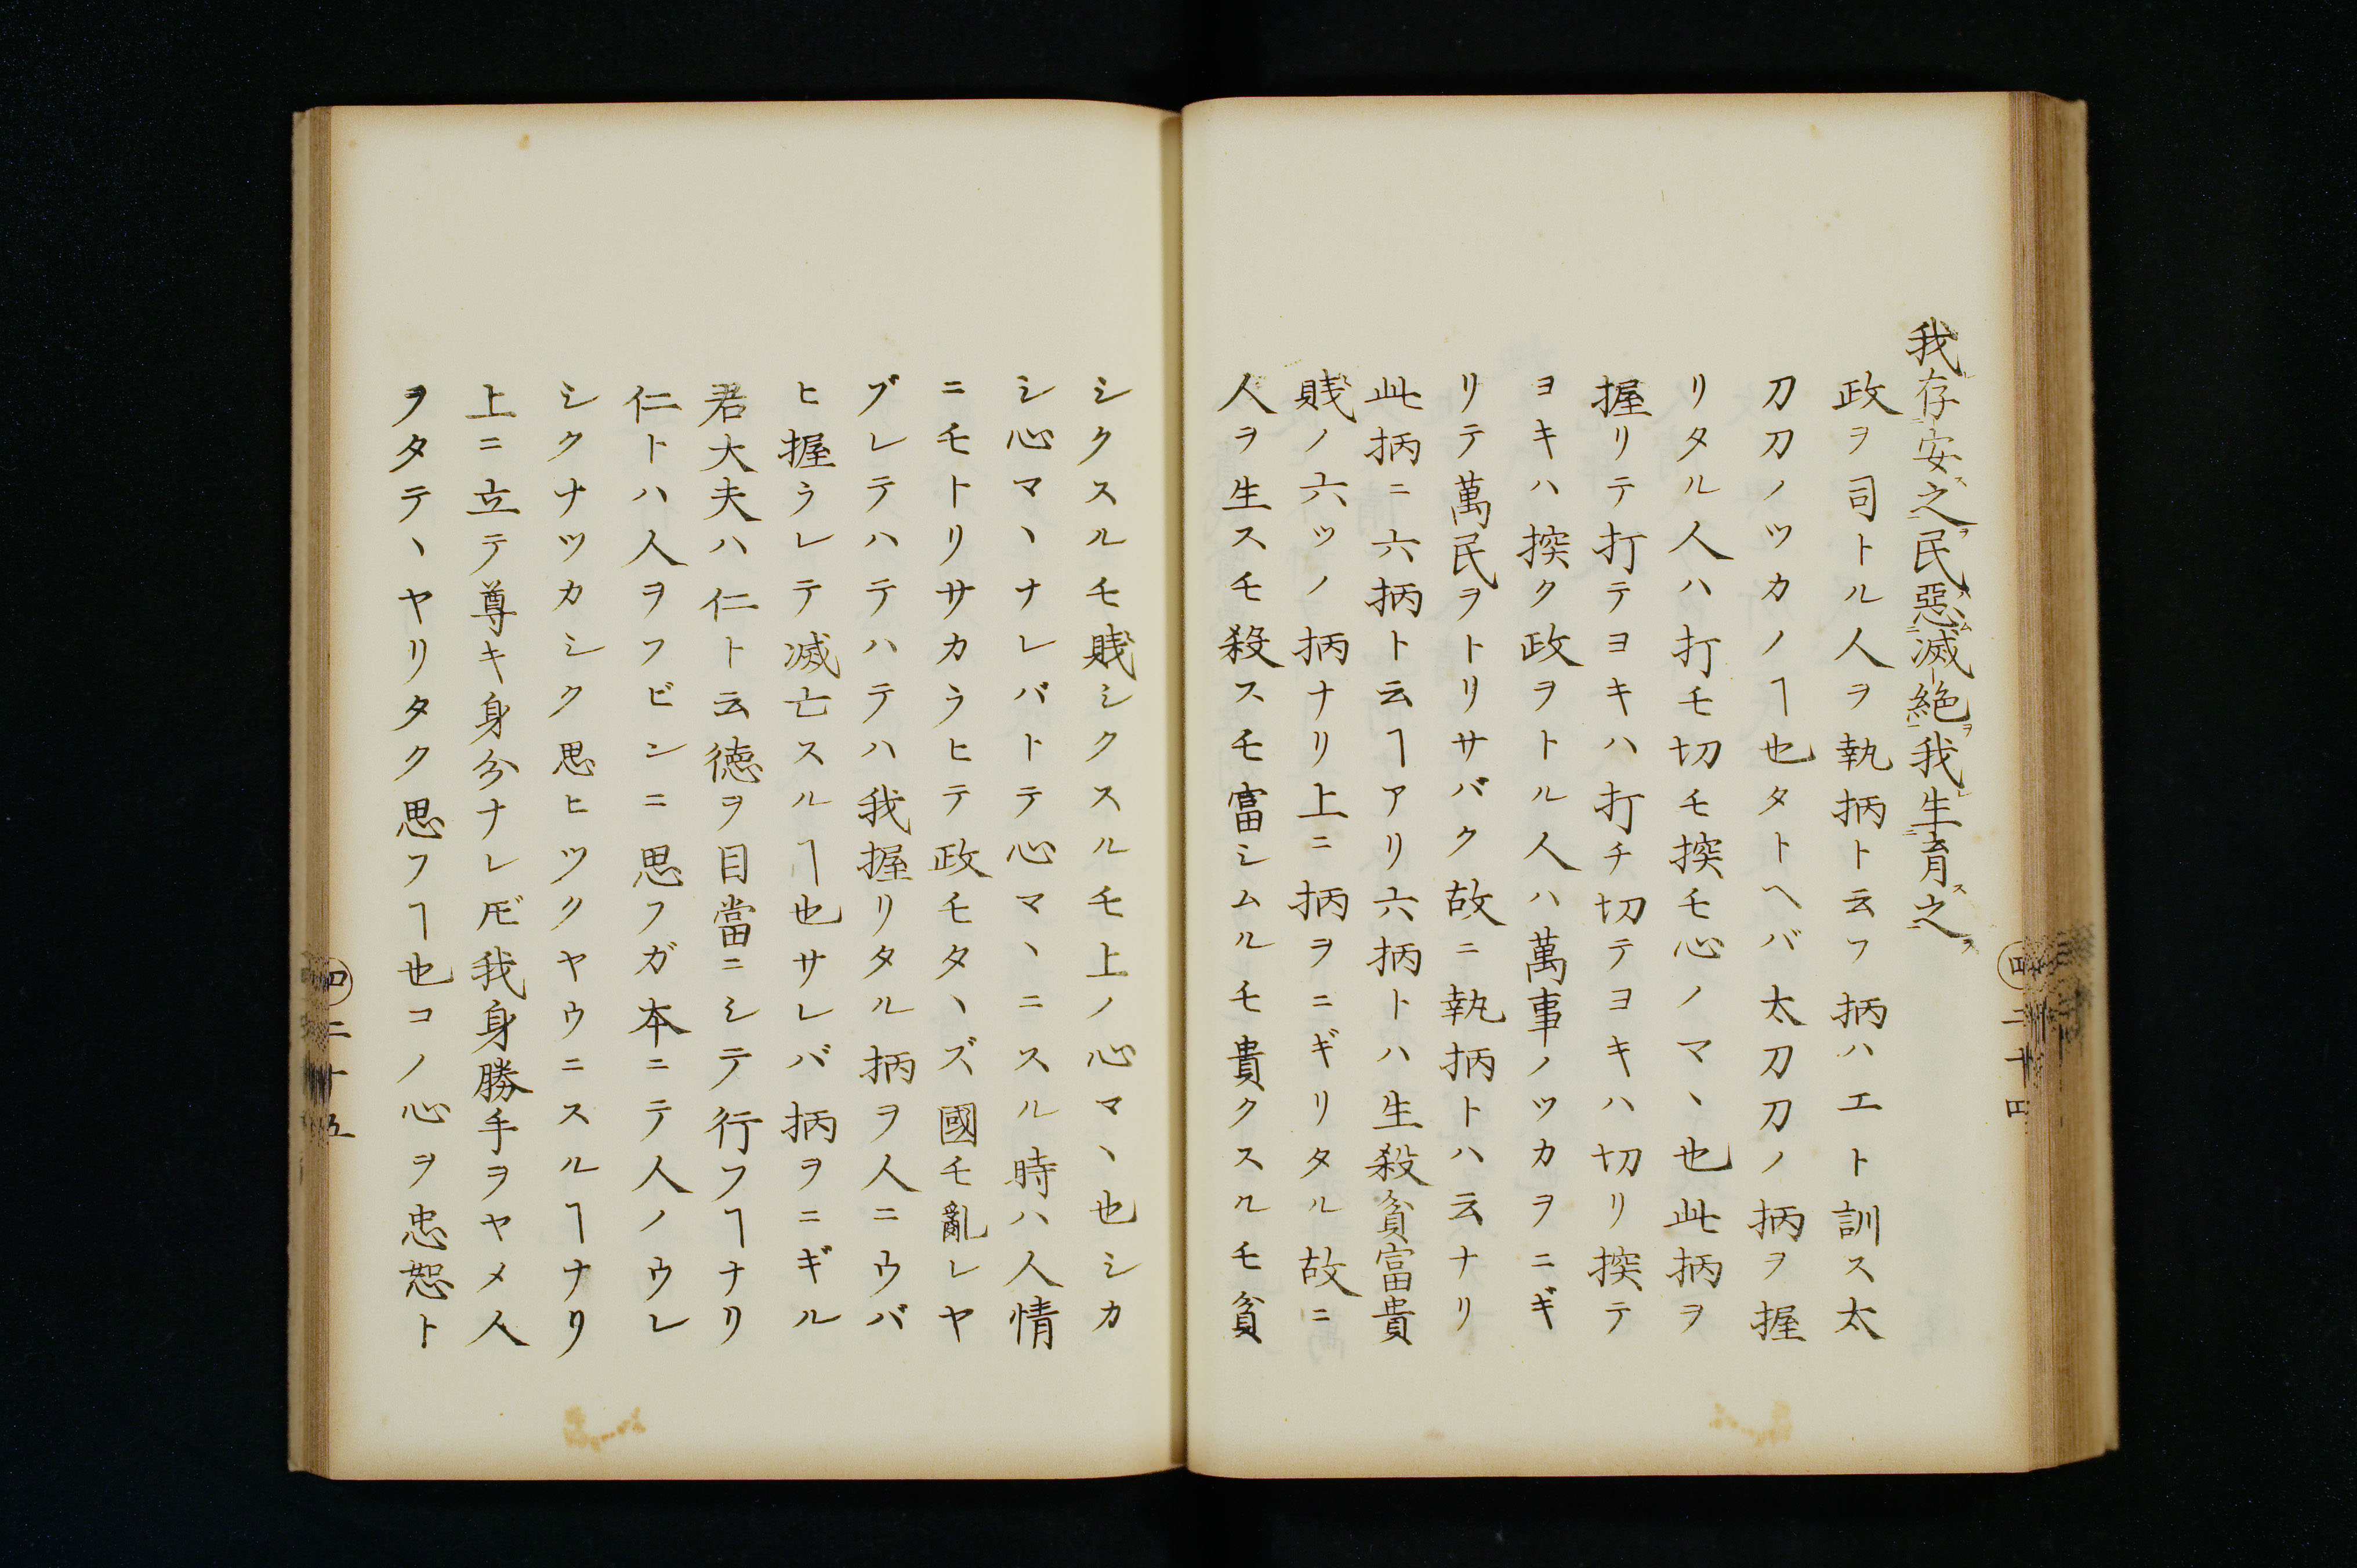 我存安之民惡滅絶我生育之
政ヲ司トル人ヲ執柄ト云フ柄ハエト訓ス太
刀刀ノツカノヿ也タトヘバ太刀刀ノ柄ヲ握
リタル人ハ打モ切モ揬モ心ノマヽ也此柄ヲ
握リテ打テヨキハ打チ切テヨキハ切リ揬テ
ヨキハ揬ク政ヲトル人ハ萬事ノツカヲニギ
リテ萬民ヲトリサバク故ニ執柄トハ云ナリ
此柄ニ六柄ト云ヿアリ六柄トハ生殺貧富貴
賎ノ六ツノ柄ナリ上ニ柄ヲニギリタル故ニ
人ヲ生スモ殺スモ富シムルモ貴クスルモ貧
四 二十四
シクスルモ賎シクスルモ上ノ心マヽ也シカ
シ心マヽナレバトテ心マヽニスル時ハ人情
ニモトリサカラヒテ政モタヽズ國モ亂レヤ
ブレテハテハテハ我握リタル柄ヲ人ニウバ
ヒ握ラレテ滅亡スルヿ也サレバ柄ヲニギル
君大夫ハ仁ト云徳ヲ目當ニシテ行フヿナリ
仁トハ人ヲフビンニ思フガ本ニテ人ノウレ
シクナツカシク思ヒツクヤウニスルヿナリ
上ニ立テ尊キ身分ナレ𪜈我身勝手ヲヤメ人
ヲタテヽヤリタク思フヿ也コノ心ヲ忠恕ト
四 二十五